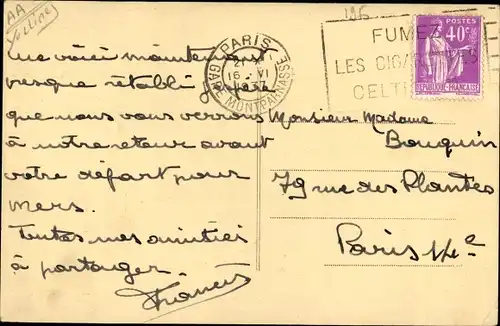 AA
196
PARIS
21
16 - VI
1937
GARE MONTPARNASSE
FUMEZ
LES CIGARETTES
CELTI
POSTES
40c
REPUBLIQUE FRANÇAISE
Me voici maintenant
presque rétabli
que nous vous verrons
à notre retour avant
votre départ pour
mers.
Toutes mes amitiés
à partager.
Francis
Monsieur Madame
Bouquin
79 rue des Plantes
Paris 14e